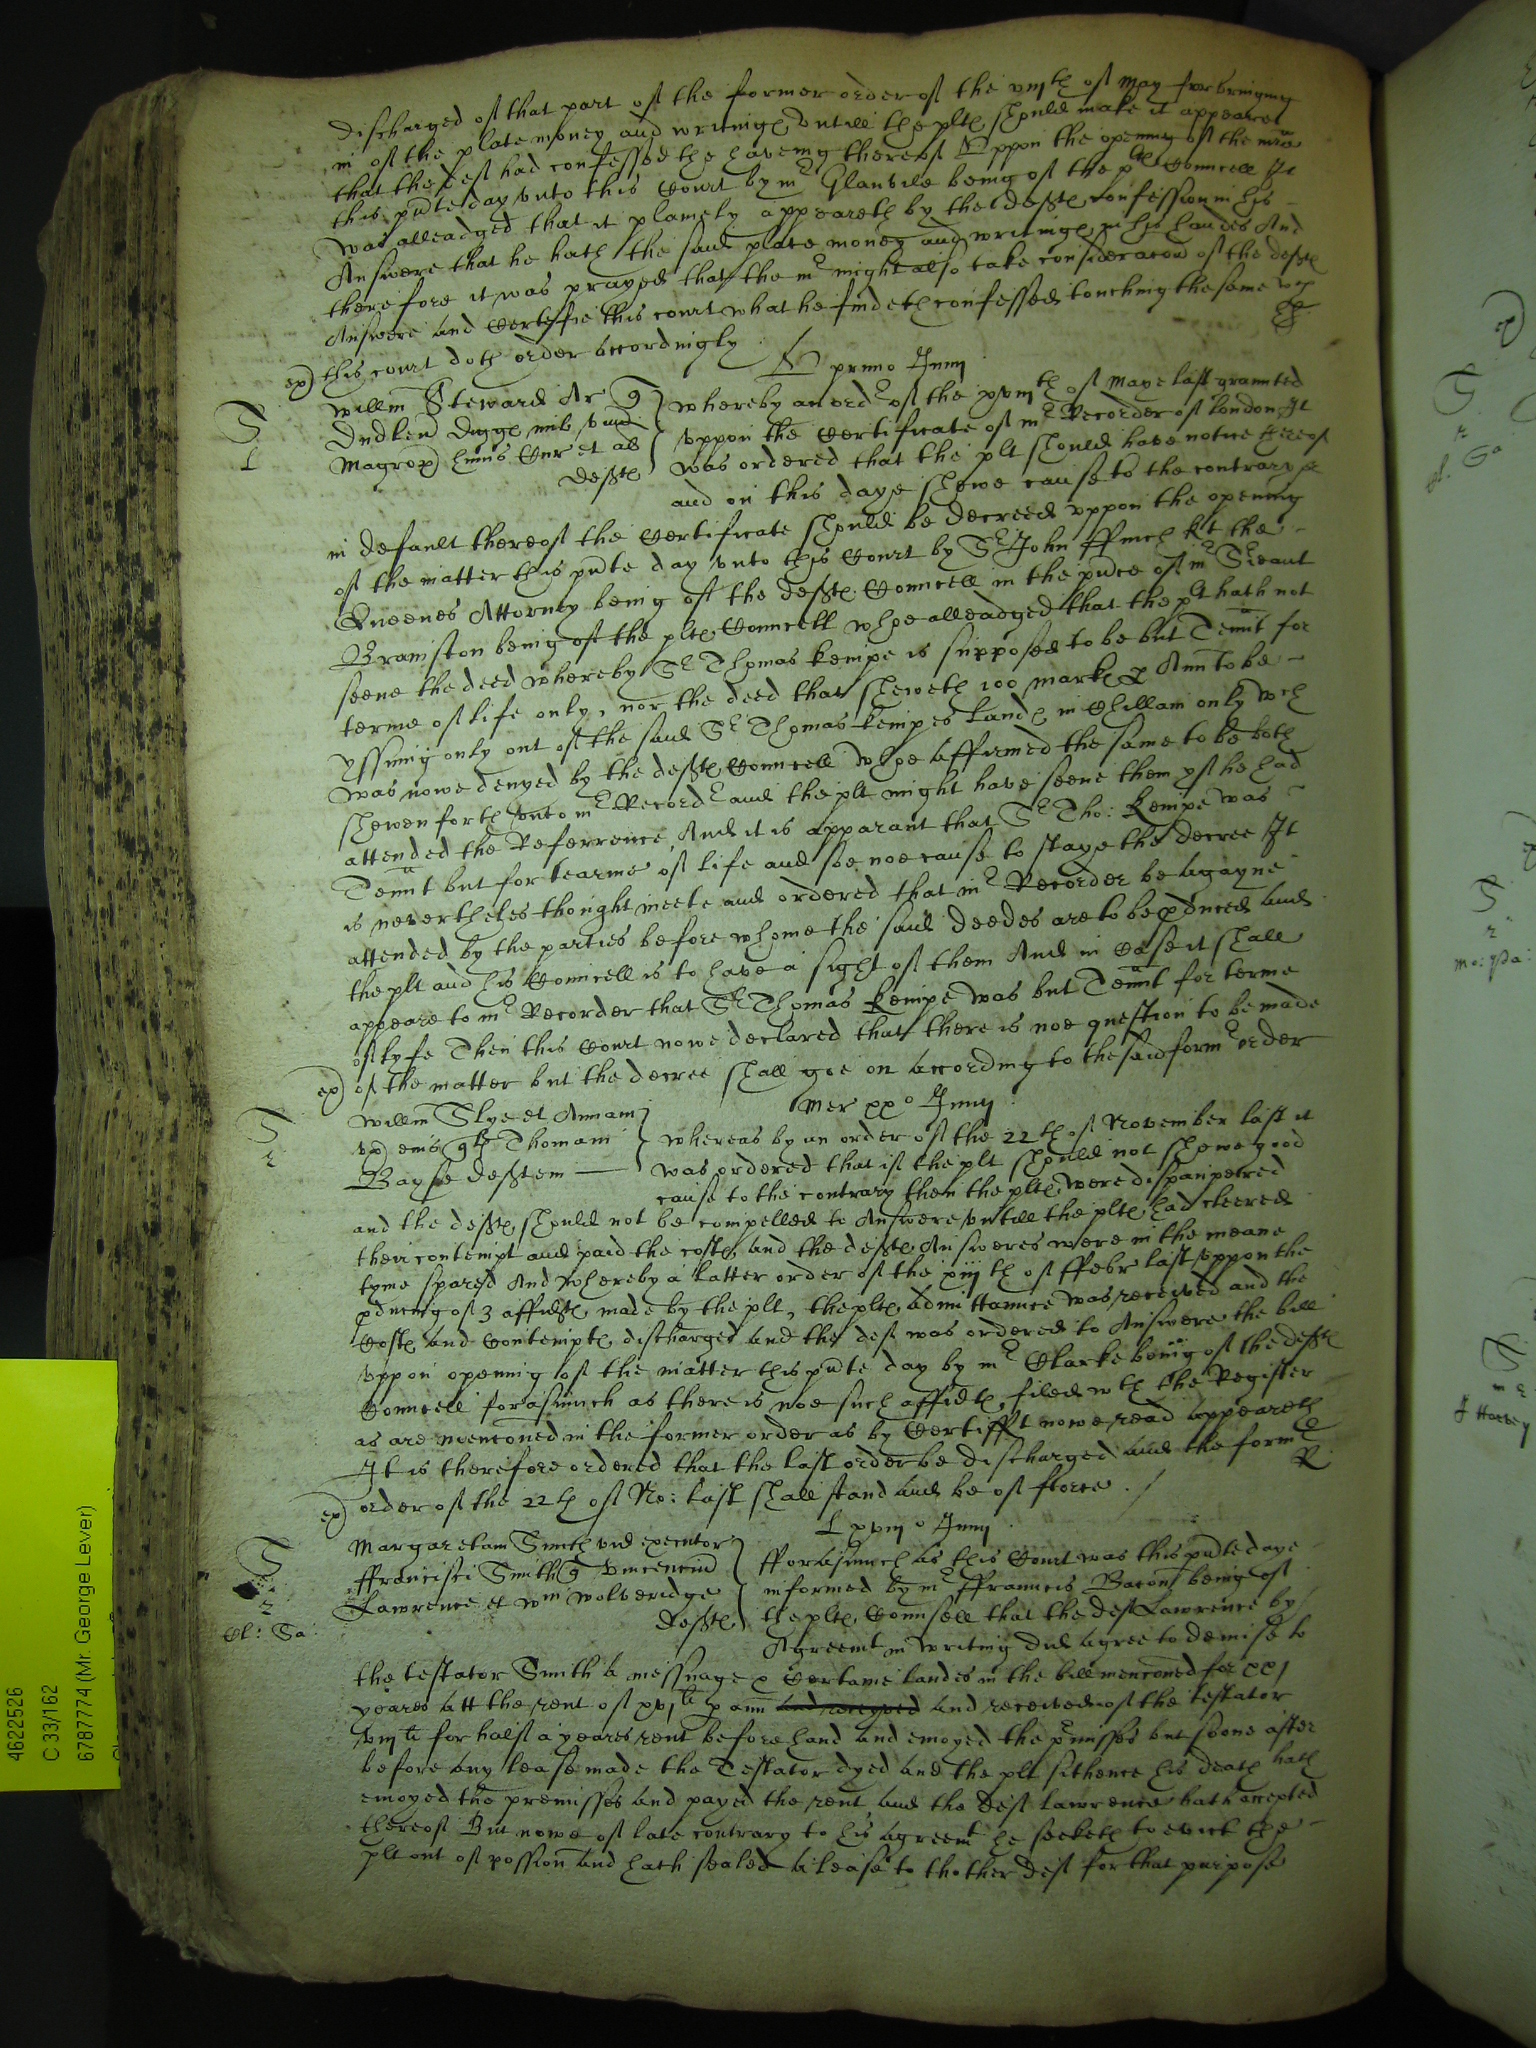 discharged of that part of the former order of the viijth of May for bringing
in of the plate money and writinge untill the plte should make it appeare
that the deft had confessed the haveing thereof Uppon the opening of the
this pnte day unto this Court by mr Glanvile being of the plte Councell It
was alleadged that it plainely appeareth by the defte confession in his
Answere that he hath the said plate money and writinge in his handes And
therefore it was prayed that the mr might also take consideracon of the defte
Answere and Certifie this court what he findeth confessed touching the same wch
this court doth order accordingly
primo Junij
Willm Steward Ar
whereby an ordr of the xxviijth of Maye last graunted
uppon the Certificate of mr Recorder of London It
defte was ordered that the plt should have notice thereof
and on this daye shewe cause to the contrary or
in default thereof the Certificate should be decreed uppon the opening
of the matter this pnte day unto this Court by Sr John ffinch kt the
Queenes Attorney being of the defte Councell in the pnce of mr Sreant
Bramston being of the plte Councell whoe alleadged that the plt hath not
seene the deed whereby Sr Thomas Kempe is supposed to be but Tennt for
terme of life only, nor the deed that sheweth 100 marke p Ann to be
yssuing only out of the said Sr Thomas Kempes lande in Chillam only wch
was nowe denyed by the defte Councell whoe affirmed the same to be both
shewen forth unto mr Recordr and the plt might have seene them yf he had
attended the Referrence, And it is apparant that Sr Tho: Kempe was
Tennt but for tearme of life and soe noe cause to staye the decree It
is neverthelesse thought meete and ordered that mr Recorder be agayne
attended by the parties before whome the said deedes are to be pduced and
the plt and his Councell is to have a sight of them And in Case it shall
appeare to mr Recorder that Sr Thomas Kempe was but Tennt for terme
of lyfe Then this Court nowe declared that there is noe question to be made
of the matter but the decree shall goe on according to the said formr order
Mer xxo Junij
Willm Slye et Annam
ux eius Thomam
Bayse deftem
whereas by an order of the 22th of November last it
was ordered that if the plt should not shewe good
cause to the contrary then the plte were dispaupered
and the defte should not be compelled to Answere untill the plte had cleered
their contempt and paid the coste and the defte Answeres were in the meane
tyme spared And whereby a latter order of the xiijth of ffebr last uppon the
pducing of 3 affidte made by the plt, the plte admittance was received and the
Coste and Contempte discharged and the deft was ordered to Answere the bill
uppon opening of the matter this pnte day by mr Clarke being of the defte
Councell forasmuch as there is noe such affidte filed wth the Register
as are menconed in the former order as by Certifft nowe read appeareth
It is therefore ordered that the last order be discharged and the formr
order of the 22th of No: last shall stand and be of fforce
L xviijo Junij
Margaretam Smith vid executor
ffrancisci Smith Vincencium
Lawrence et Wm Wolveridge
defte
fforasmuch as this Court was this pnte daye
informed by mr ffrauncis Bacon being of
the plte Counsell that the deft Lawrence by
Agreemt in writing did agree to demise to
the testator Smith a messuage & Certaine landes in the bill menconed for xxj
yeares att the rent of xvjli p ann and receyved and received of the testator
viijli for halfe a yeares rent before hand and enioyed the pmisses but soone after
before any lease made the Testator dyed and the plt sithence his death hath
enioyed the premisses and payed the rent and the deft Lawrence hath accepted
thereof But nowe of late contrary to his agreemt he seeketh to evict the
plt out of possion and hath sealed a lease to thother deft for that purpose
4622526
C 33/162
6787774 (Mr. George Lever)